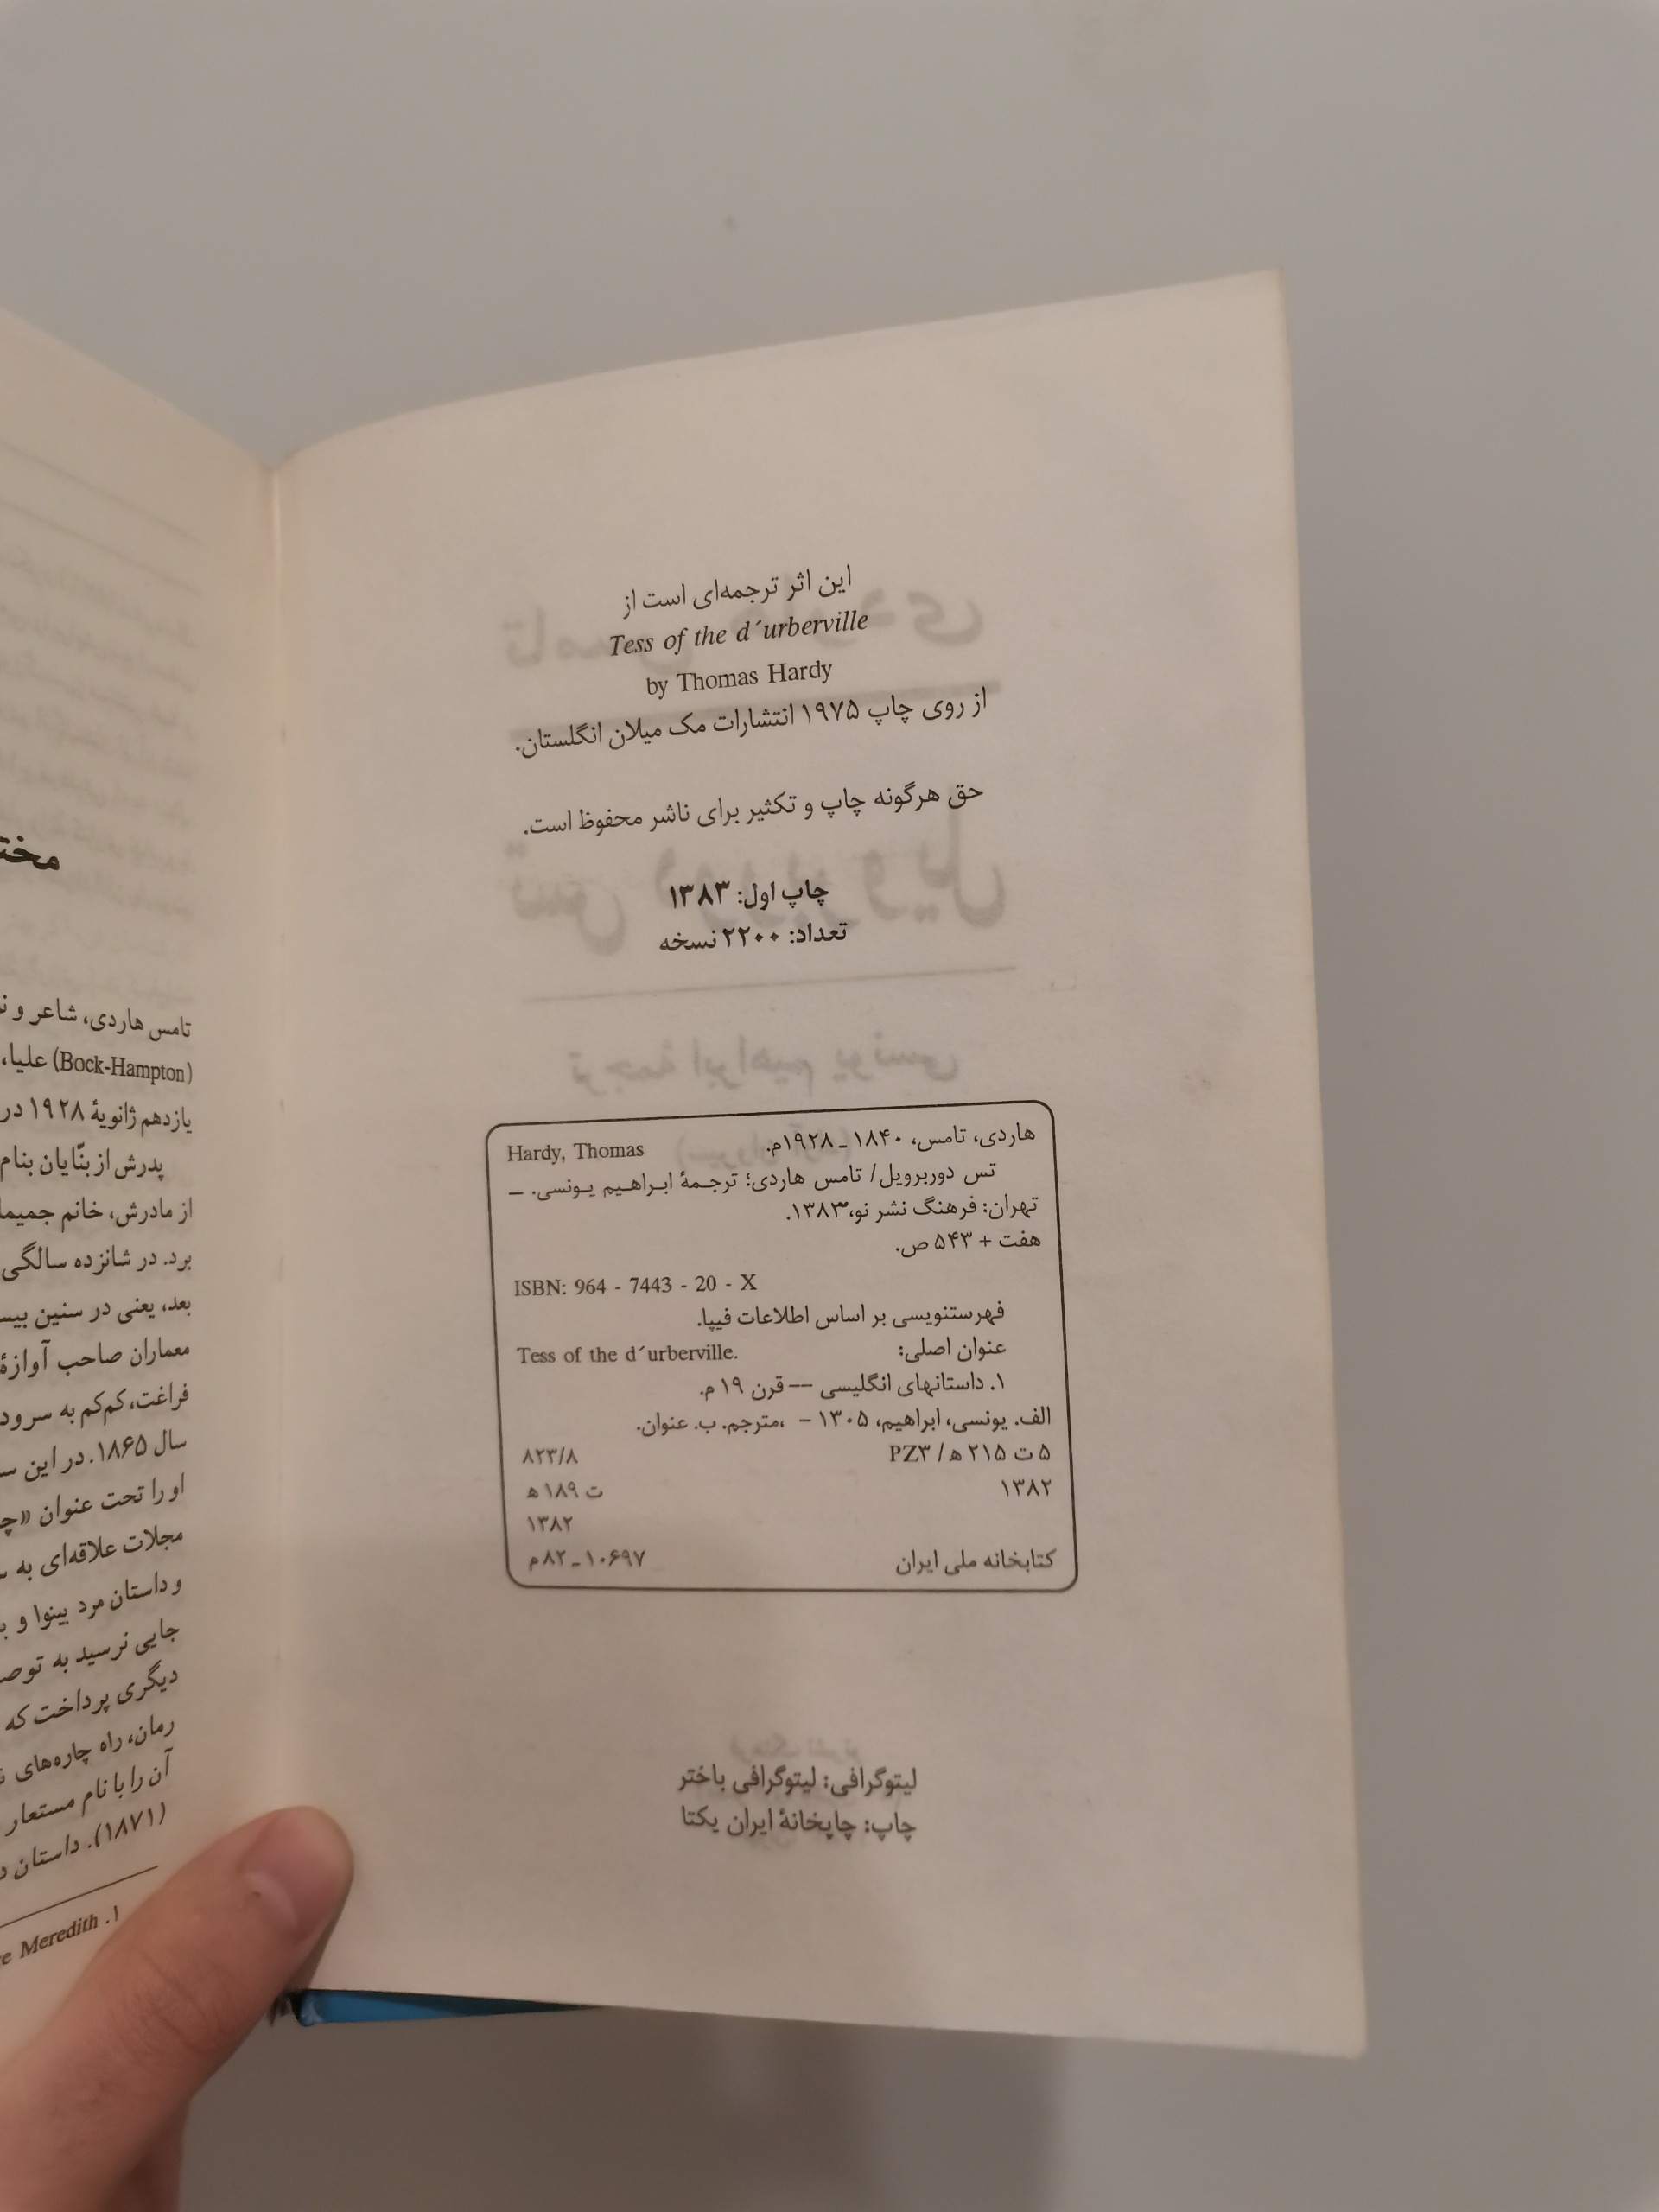 این اثر ترجمه‌ای است از
Tess of the d´urberville
by Thomas Hardy
از روی چاپ ۱۹۷۵ انتشارات مک میلان انگلستان.
حق هرگونه چاپ و تکثیر برای ناشر محفوظ است.
چاپ اول: ۱۳۸۳
تعداد: ۲۲۰۰ نسخه
هاردی، تامس، ۱۸۴۰ ـ ۱۹۲۸م. Hardy, Thomas
تس دوربرویل/ تامس هاردی؛ ترجمهٔ ابراهیم یونسی. ـ
تهران: فرهنگ نشر نو،۱۳۸۳.
هفت + ۵۴۳ ص.
ISBN: 964 - 7443 - 20 - X
فهرستنویسی بر اساس اطلاعات فیپا.
عنوان اصلی: Tess of the d´urberville.
۱. داستانهای انگلیسی -- قرن ۱۹ م.
الف. یونسی، ابراهیم، ۱۳۰۵ - ،مترجم. ب. عنوان.
۵ ت ۲۱۵ ه‍ / PZ۳ ۸۲۳/۸
۱۳۸۲ ت ۱۸۹ ه‍
۱۳۸۲
کتابخانه ملی ایران ۱۰۶۹۷ ـ ۸۲م
لیتوگرافی: لیتوگرافی باختر
چاپ: چاپخانهٔ ایران یکتا
تامس هاردی، شاعر و
(Bock-Hampton) علیا،
یازدهم ژانویهٔ ۱۹۲۸ در
پدرش از بنّایان بنام
از مادرش، خانم
برد. در شانزده سالگی
بعد، یعنی در سنین
معماران صاحب آوازهٔ
فراغت، کم‌کم به
سال ۱۸۶۵. در این
او را تحت عنوان
مجلات علاقه‌ای به
و داستان مرد بینوا و
جایی نرسید به
دیگری پرداخت که
رمان، راه چاره‌های
آن را با نام مستعار
(۱۸۷۱). داستان
۱. Meredith